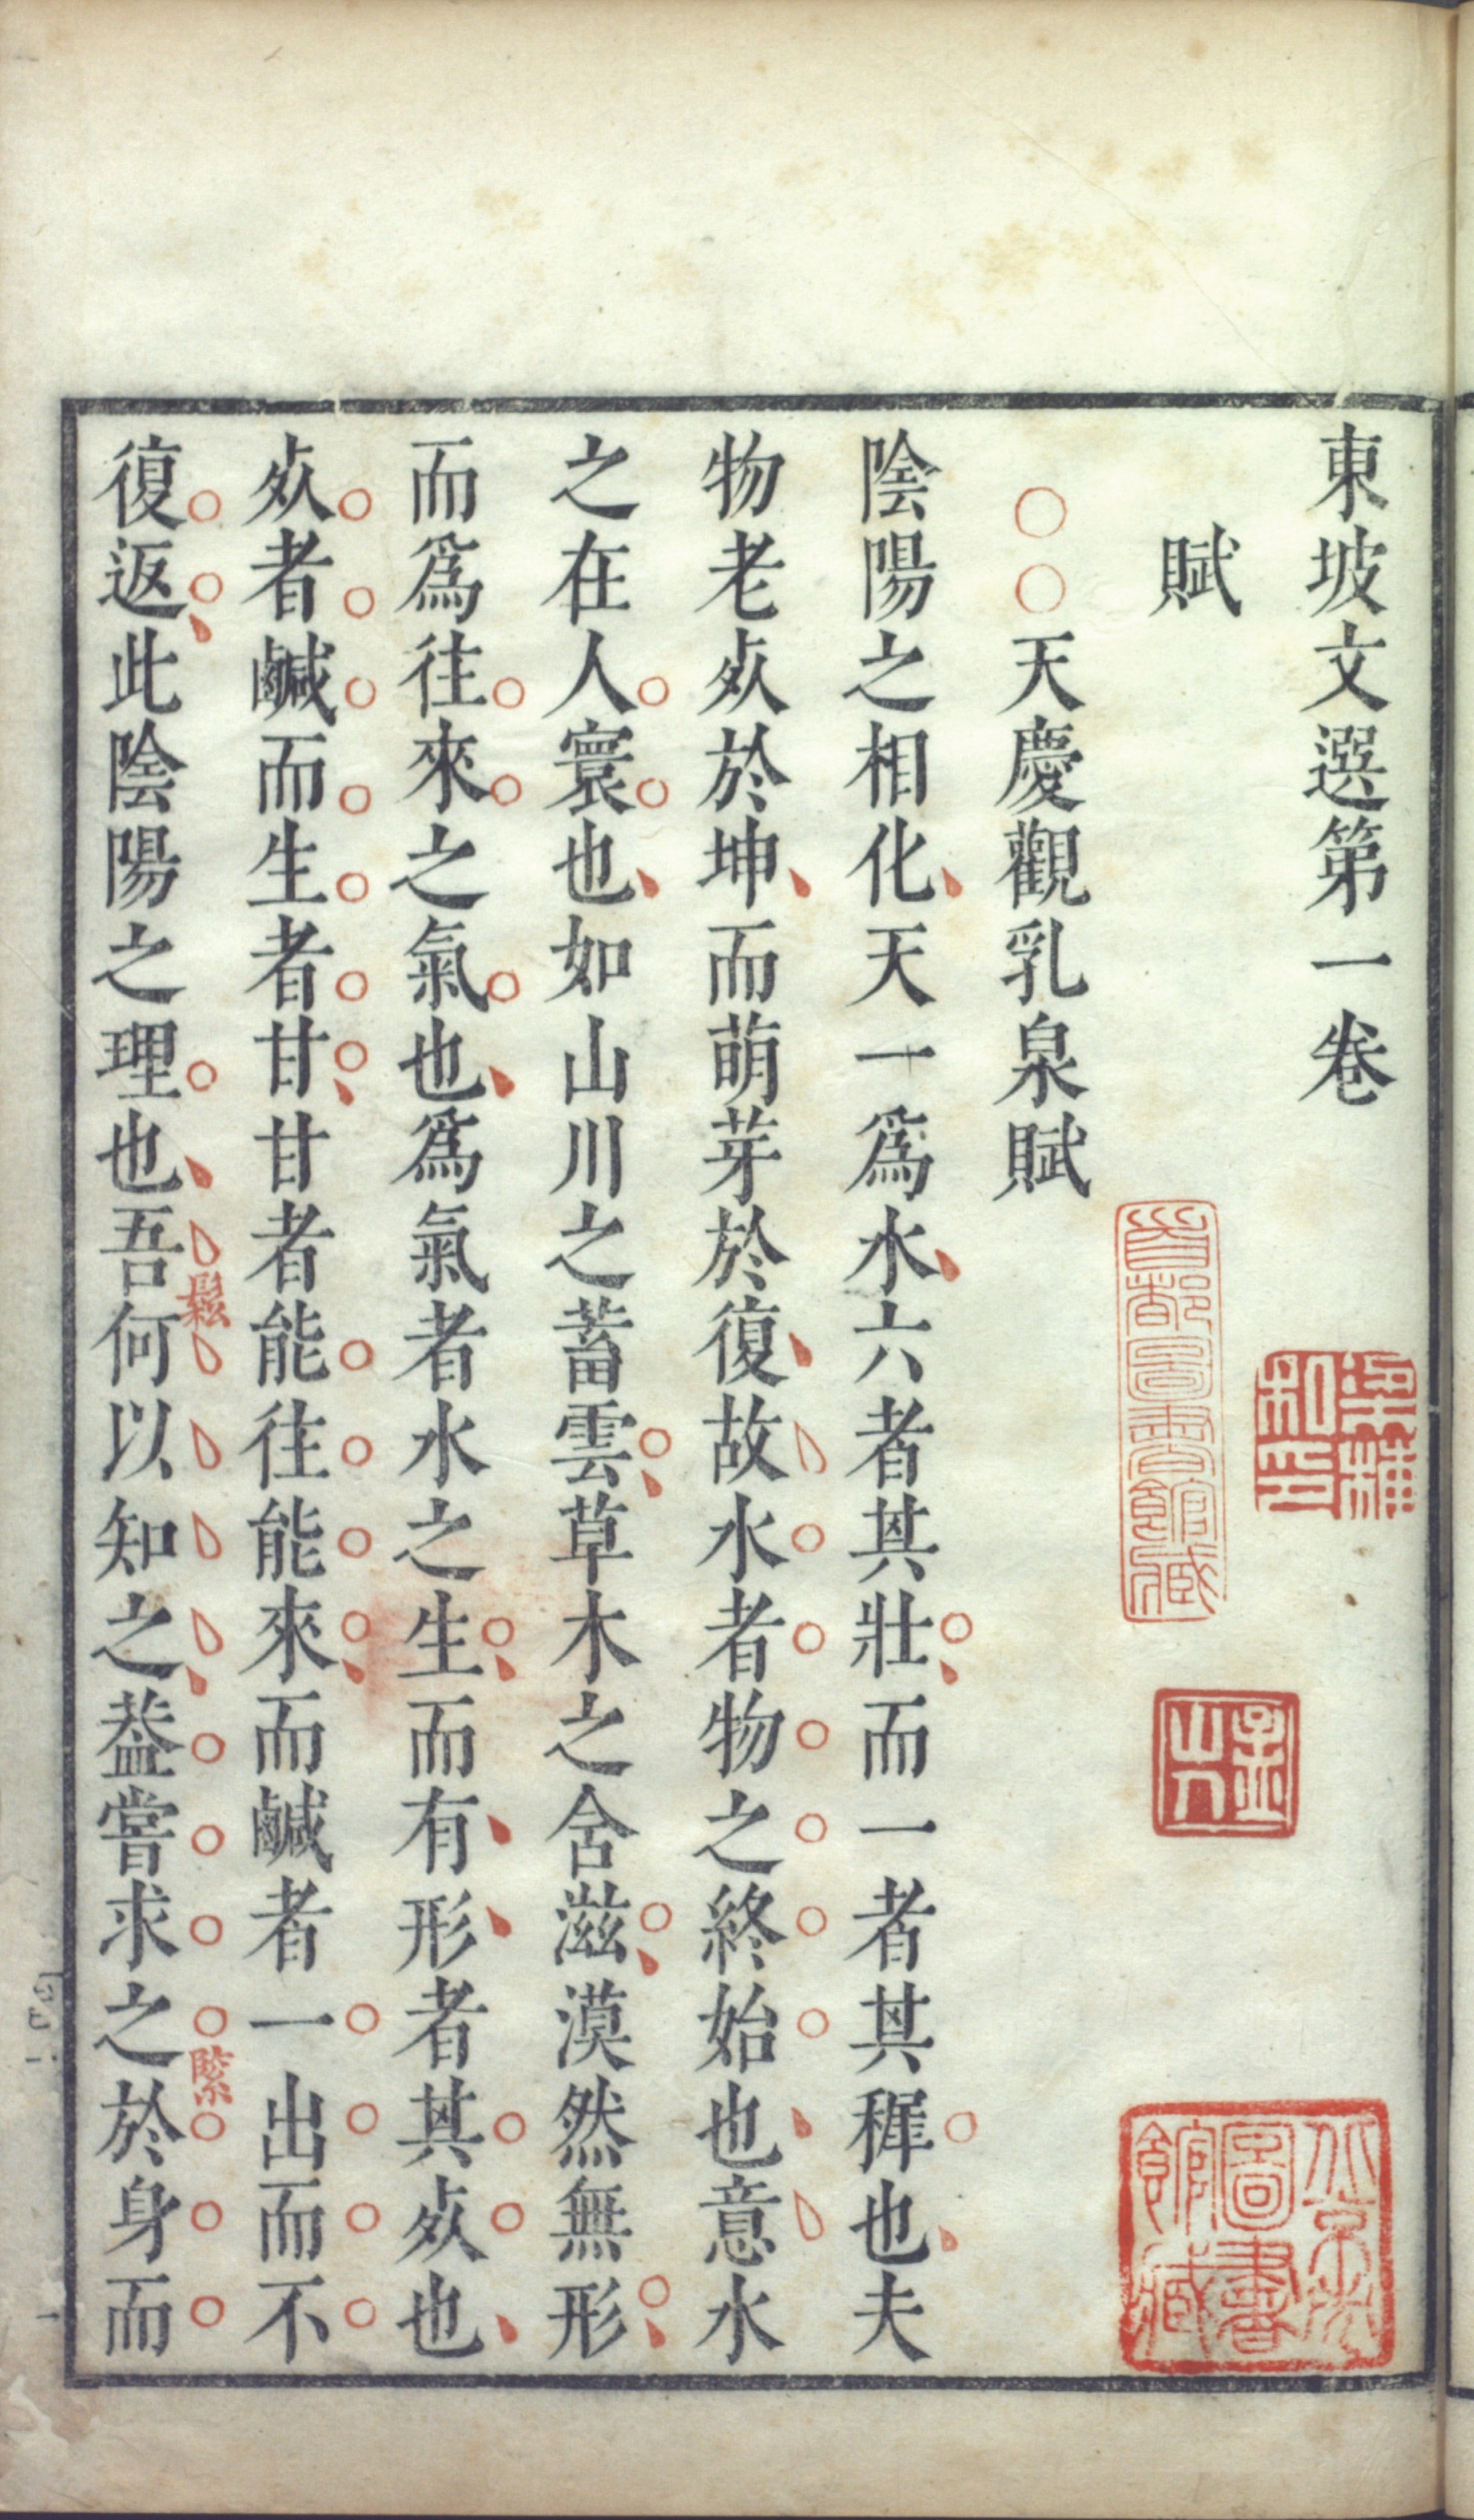 東坡文選第一卷
賦
天慶觀乳泉賦
陰陽之相化天一爲水六者其壯而一者其穉也夫
物老死於坤而萌芽於復故水者物之終始也意水
之在人寰也如山川之蓄雲草木之含滋漠然無形
而爲往來之氣也爲氣者水之生而有形者其死也
死者鹹而生者甘甘者能往能來而鹹者一出而不
復返此陰陽之理也吾何以知之葢嘗求之於身而
鬆
緊
首都圖書館藏
北京圖書館藏